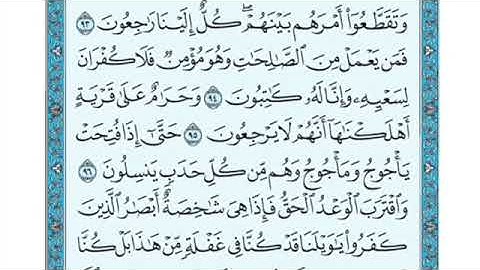 وَتَقَطَّعُوٓا۟ أَمْرَهُم بَيْنَهُمْ ۖ كُلٌّ إِلَيْنَا رَٰجِعُونَ ٩٣
فَمَن يَعْمَلْ مِنَ ٱلصَّـٰلِحَـٰتِ وَهُوَ مُؤْمِنٌ فَلَا كُفْرَانَ
لِسَعْيِهِۦ وَإِنَّا لَهُۥ كَـٰتِبُونَ ٩٤ وَحَرَٰمٌ عَلَىٰ قَرْيَةٍ
أَهْلَكْنَـٰهَآ أَنَّهُمْ لَا يَرْجِعُونَ ٩٥ حَتَّىٰٓ إِذَا فُتِحَتْ
يَأْجُوجُ وَمَأْجُوجُ وَهُم مِّن كُلِّ حَدَبٍ يَنسِلُونَ ٩٦
وَٱقْتَرَبَ ٱلْوَعْدُ ٱلْحَقُّ فَإِذَا هِىَ شَـٰخِصَةٌ أَبْصَـٰرُ ٱلَّذِينَ
كَفَرُوا۟ يَـٰوَيْلَنَا قَدْ كُنَّا فِى غَفْلَةٍ مِّنْ هَـٰذَا بَلْ كُنَّا